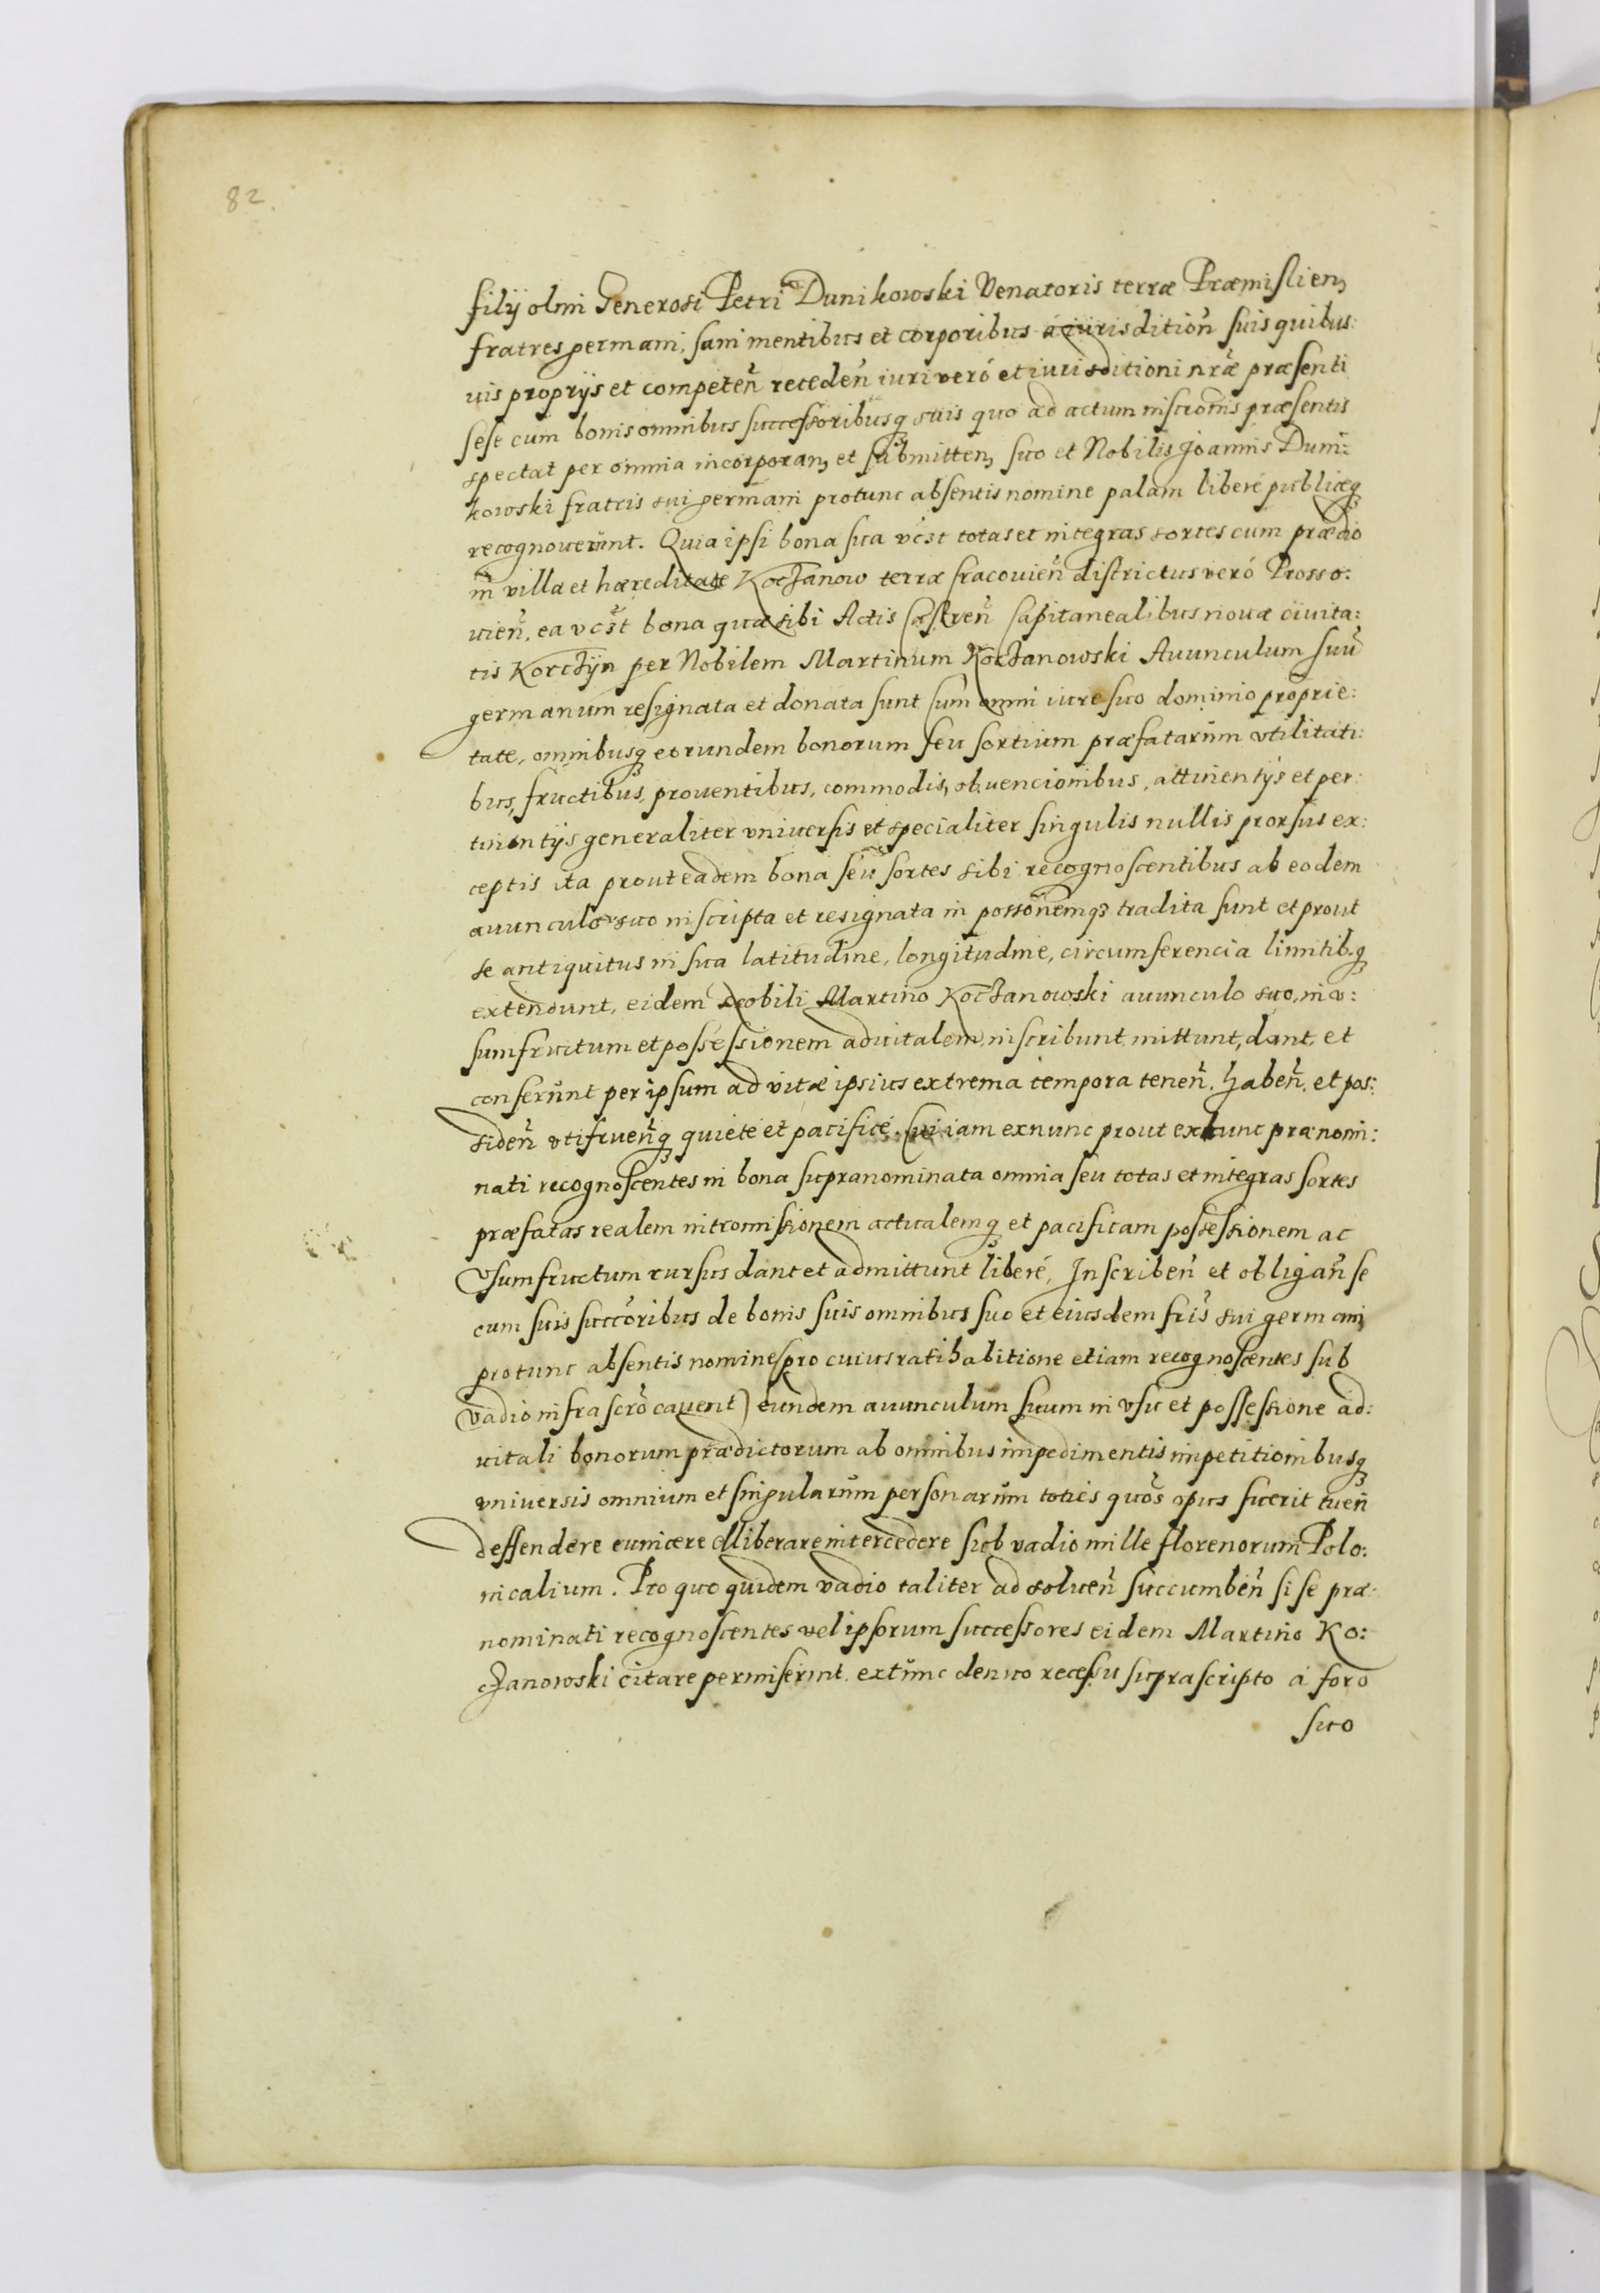 82.
filÿ olmi Generosi Petri Dunikowski Venatoris terræ Præmislien,
fratres germani, sani mentibus et corporibus á iurisdition̄ suis quibus:
uis proprÿs et competen̄ receden̄ iuri veró et iurisditioni nr̄æ præsenti
sese cum bonis omnibus successoribusq suis quo ad actum inscr̄onis præsentis
spectat per omnia incorporan, et submitten, suo et Nobilis Joannis Duni:
kowski fratris sui germani protunc absentis nomine palam liberé publiceq
recognouerunt. Quia ipsi bona sua vc̄st totas et integras sortes cum prædio
in villa et hæreditate Kochanow terræ Cracouien̄ districtus veró Prosso:
uien̄, ea vc̄st bona quæ sibi Actis Castren̄ Capitanealibus nouæ ciuita:
tis Korchÿn per Nobilem Martinum Kochanowski Auunculum suū
germanum resignata et donata sunt Cum omni iure suo dominio proprie:
tate, omnibusq eorundem bonorum seu sortium præfatarum vtilitati:
bus, fructibus, prouentibus, commodis, obuencionibus, attinentÿs et per:
tinentÿs generaliter vniuersis et specialiter singulis nullis prorsus ex:
ceptis ita prout eadem bona seu sortes sibi recognoscentibus ab eodem
auunculo suo inscripta et resignata in possōnemq tradita sunt et prout
se antiquitus in sua latitudine, longitudine, circumferencia limitib.q
extendunt, eidem Nobili Martino Kochanowski auunculo suo, in v:
sumfructum et possessionem aduitalem, inscribunt, mittunt, dant, et
conferunt per ipsum ad vitæ ipsius extrema tempora tenen̄, haben̄, et pos:
siden̄ vtifruen̄q quieté et pacificé. Cui iam exnunc prout extunc prænomi:
nati recognoscentes in bona supranominata omnia seu totas et integras sortes
præfatas realem intromissionem actualemq et pacificam possessionem ac
vsumfructum rursus dant et admittunt liberé, Inscriben̄ et obligan̄ se
cum suis succ̄oribus de bonis suis omnibus suo et eiusdem fr̄is sui germani
protunc absentis nomine (pro cuius ratihabitione etiam recognoscentes sub
vadio infrascr̄o cauent) eundem auunculum suum in vsu et possessione ad:
uitali bonorum prædictorum ab omnibus impedimentis impetitionibusq
vniversis omnium et singularum personarum toties quos̄ opus fuerit tuen̄
deffendere euincere et liberare intercedere sub vadio mille florenorum Polo:
nicalium. Pro quo quidem vadio taliter ad soluen̄ succumben̄ si se præ:
nominati recognoscentes vel ipsorum successores eidem Martino Ko:
chanowski citare permiserint, extunc denuo recessu suprascripto á foro
suo